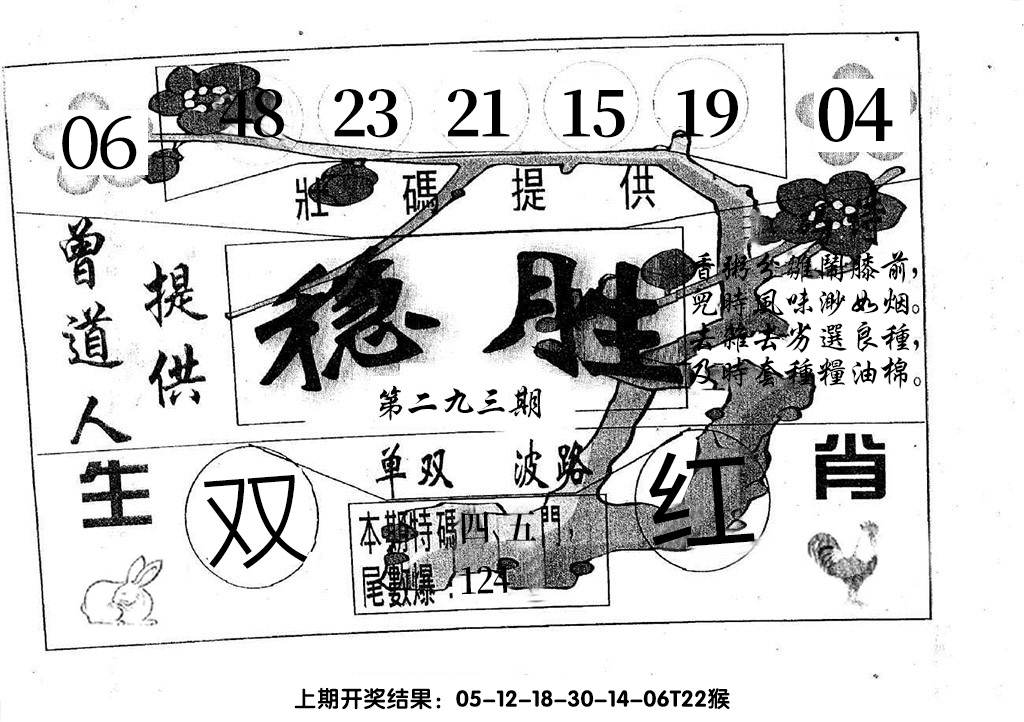 06 48 23 21 15 19 04
壯碼提供
曾道人
提供
稳胜
第二九三期
香粥分雖鬧膝前,
兕時風味渺如烟。
去雜去劣選良種,
及時套種糧油棉。
单双 波路
生 肖
双 红
本期特碼四、五門,
尾數爆:124
上期开奖结果:05-12-18-30-14-06T22猴